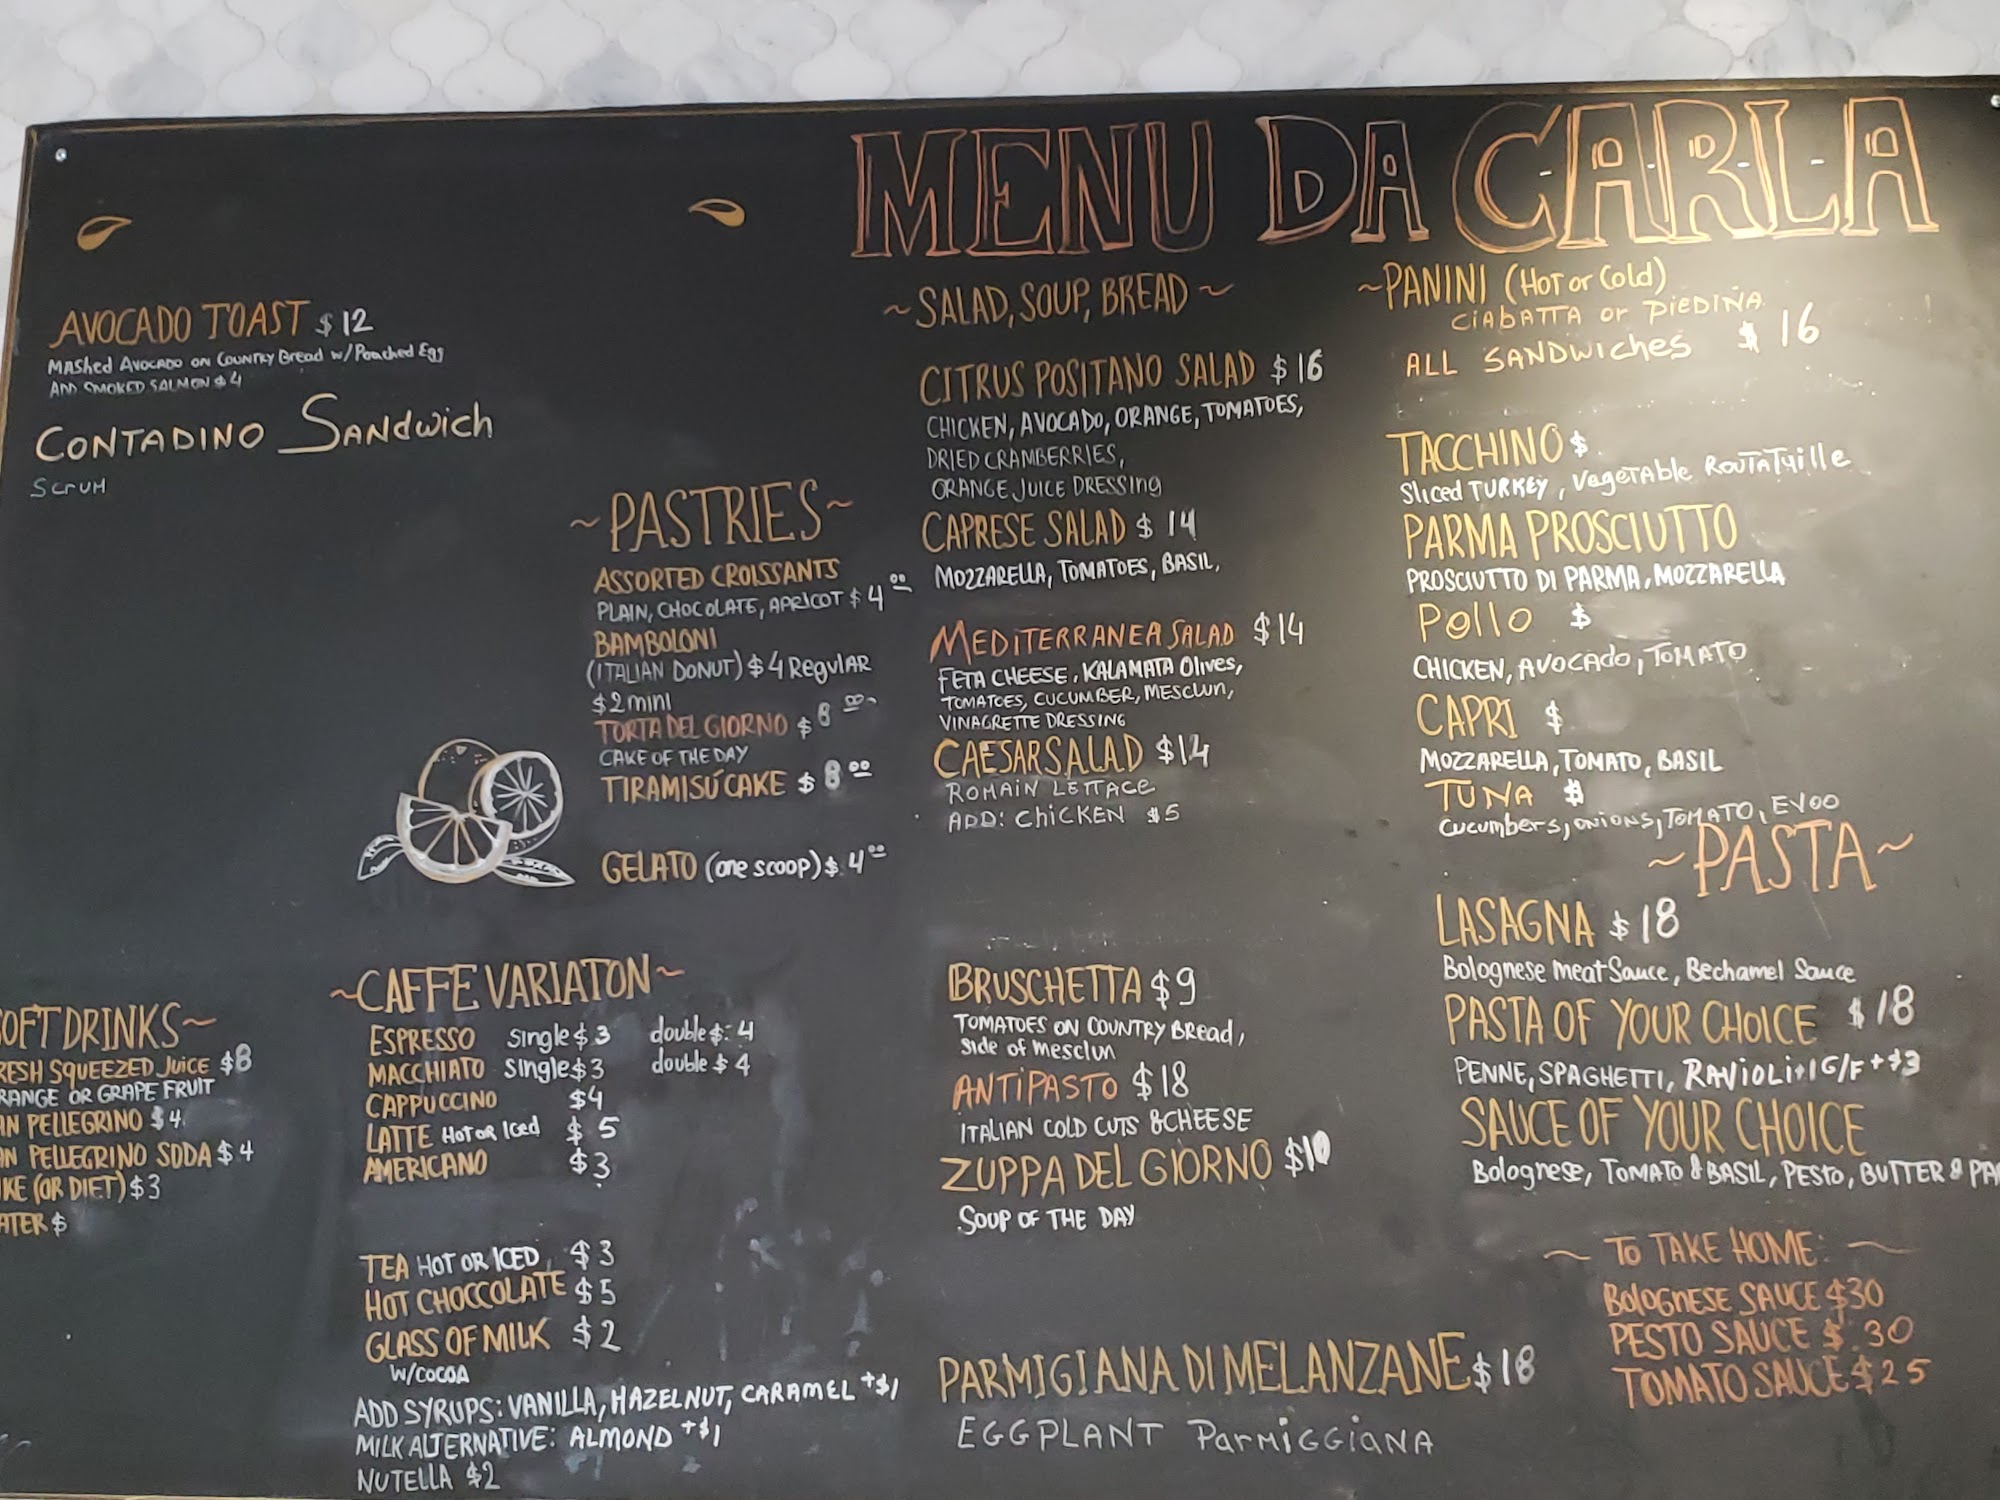 MENU DA C-A-R-L-A
AVOCADO TOAST $12
MAShed AvocADO on Country Bread w/Poached Egg
ADD SMOKED SALMON $4
CONTADINO SANdwich
~PASTRIES~
ASSORTED CROISSANTS
PLAIN, CHOCOLATE, APRICOT $4.00
BAMBOLONI
(ITALIAN DONUT) $4 Regular
$2 mini
TORTA DEL GIORNO $8.00
CAKE OF THE DAY
TIRAMISÚ CAKE $8.00
GELATO (one scoop) $.4.00
SOFT DRINKS~
FRESH SQUEEZED JUICE $8
ORANGE OR GRAPE FRUIT
AN PELLEGRINO $4
AN PELLEGRINO SODA $4
KE (OR DIET) $3
ATER $
~CAFFE VARIATON~
ESPRESSO single $3 double $: 4
MACCHIATO single $3 double $4
CAPPUCCINO $4
LATTE Hot or Iced $5
AMERICANO $3
TEA HOT OR ICED $3
HOT CHOCCOLATE $5
GLASS OF MILK $2
W/COCOA
ADD SYRUPS: VANILLA, HAZELNUT, CARAMEL +$1
MILK ALTERNATIVE: ALMOND +$1
NUTELLA $2
~SALAD, SOUP, BREAD~
CITRUS POSITANO SALAD $16
CHICKEN, AVOCADO, ORANGE, TOMATOES,
DRIED CRAMBERRIES,
ORANGE JUICE DRESSING
CAPRESE SALAD $14
MOZZARELLA, TOMATOES, BASIL,
MEDITERRANEA SALAD $14
FETA CHEESE, KALAMATA Olives,
TOMATOES, CUCUMBER, MESCLUN,
VINAGRETTE DRESSING
CAESAR SALAD $14
ROMAIN LETTACE
ADD: CHICKEN $5
BRUSCHETTA $9
TOMATOES ON COUNTRY BREAD,
side of mesclun
ANTIPASTO $18
ITALIAN COLD CUTS & CHEESE
ZUPPA DEL GIORNO $10
SOUP OF THE DAY
PARMIGIANA DI MELANZANE $18
EGGPLANT PARMIGGIANA
~PANINI (Hot or Cold)
CIABATTA or PIEDINA
ALL SANDWICHES $16
TACCHINO $
Sliced TURKEY, VegeTABLE ROUTATUille
PARMA PROSCIUTTO
PROSCIUTTO DI PARMA, MOZZARELLA
POLLO $
CHICKEN, AVOCADO, TOMATO
CAPRI $
MOZZARELLA, TOMATO, BASIL
TUNA $
Cucumbers, onions, TOMATO, EVOO
~PASTA~
LASAGNA $18
Bolognese meat Sauce, Bechamel Sauce
PASTA OF YOUR CHOICE $18
PENNE, SPAGHETTI, RAVIOLI+1 G/F +$3
SAUCE OF YOUR CHOICE
Bolognese, TOMATO & BASIL, PESTO, BUTTER & PA
~ TO TAKE HOME: ~
BOLOGNESE SAUCE $30
PESTO SAUCE $.30
TOMATO SAUCE $25